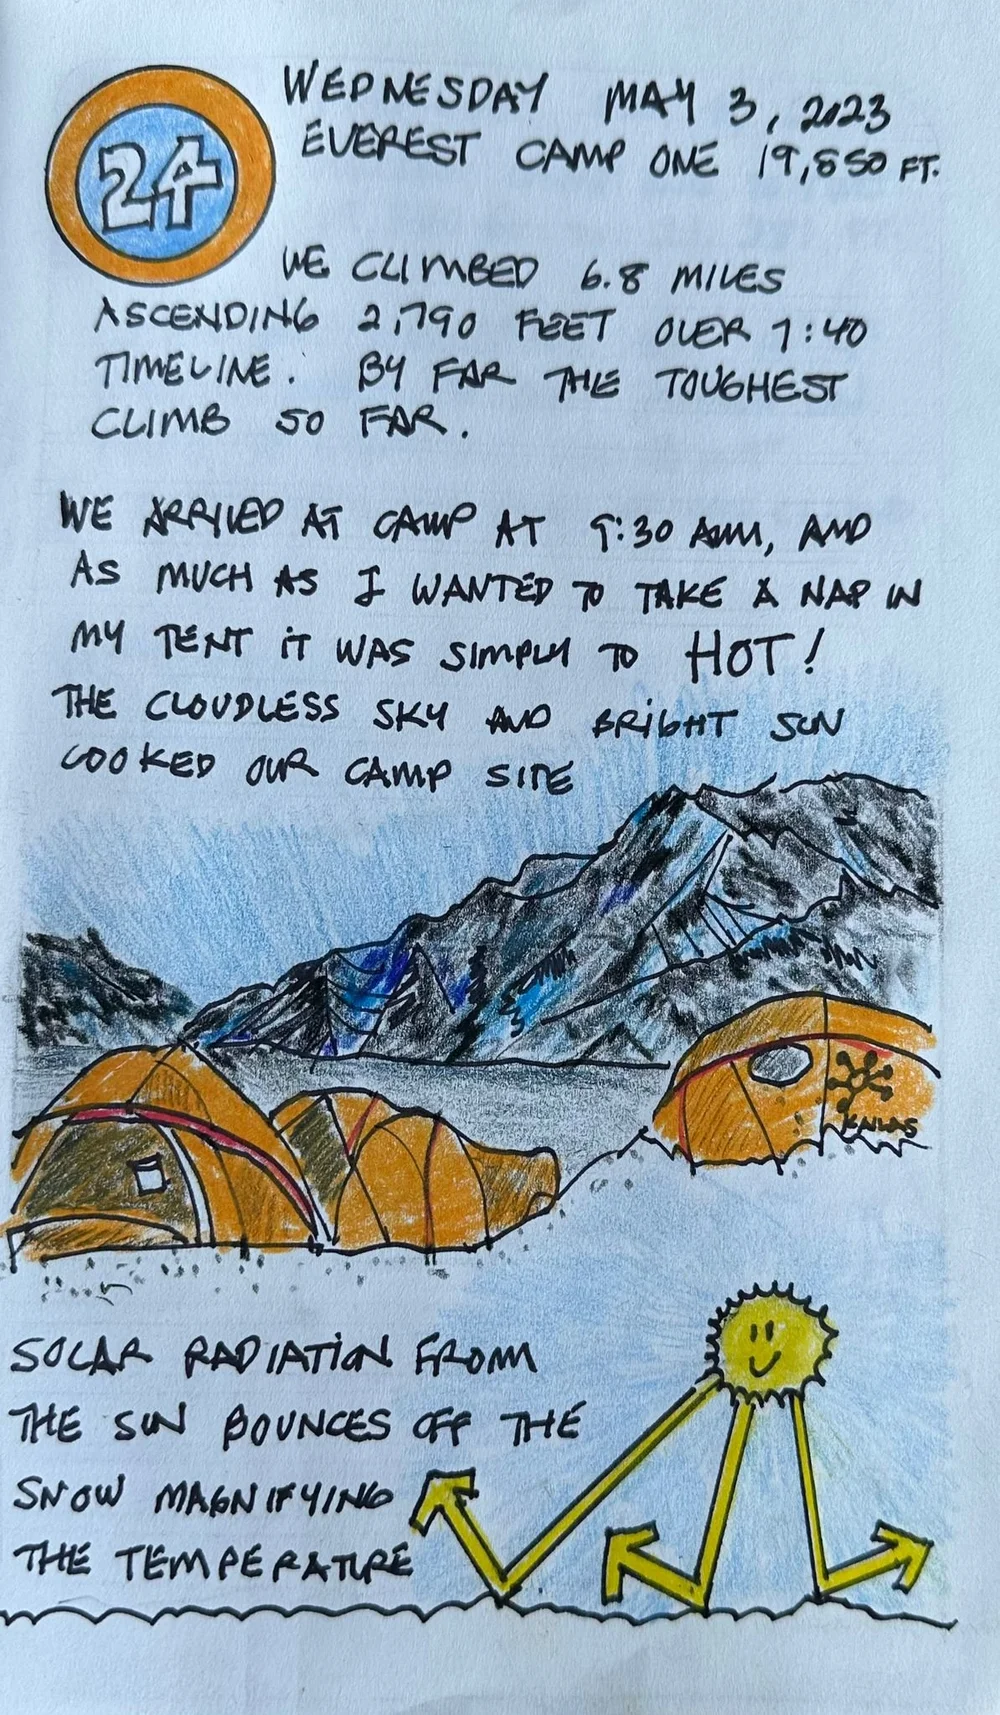 24
WEDNESDAY MAY 3, 2023
EVEREST CAMP ONE 19,850 FT.
WE CLIMBED 6.8 MILES
ASCENDING 2,790 FEET OVER 7:40
TIMELINE. BY FAR THE TOUGHEST
CLIMB SO FAR.
WE ARRIVED AT CAMP AT 9:30 AM, AND
AS MUCH AS I WANTED TO TAKE A NAP IN
MY TENT IT WAS SIMPLY TO HOT!
THE CLOUDLESS SKY AND BRIGHT SUN
COOKED OUR CAMP SITE
SOLAR RADIATION FROM
THE SUN BOUNCES OFF THE
SNOW MAGNIFYING
THE TEMPERATURE